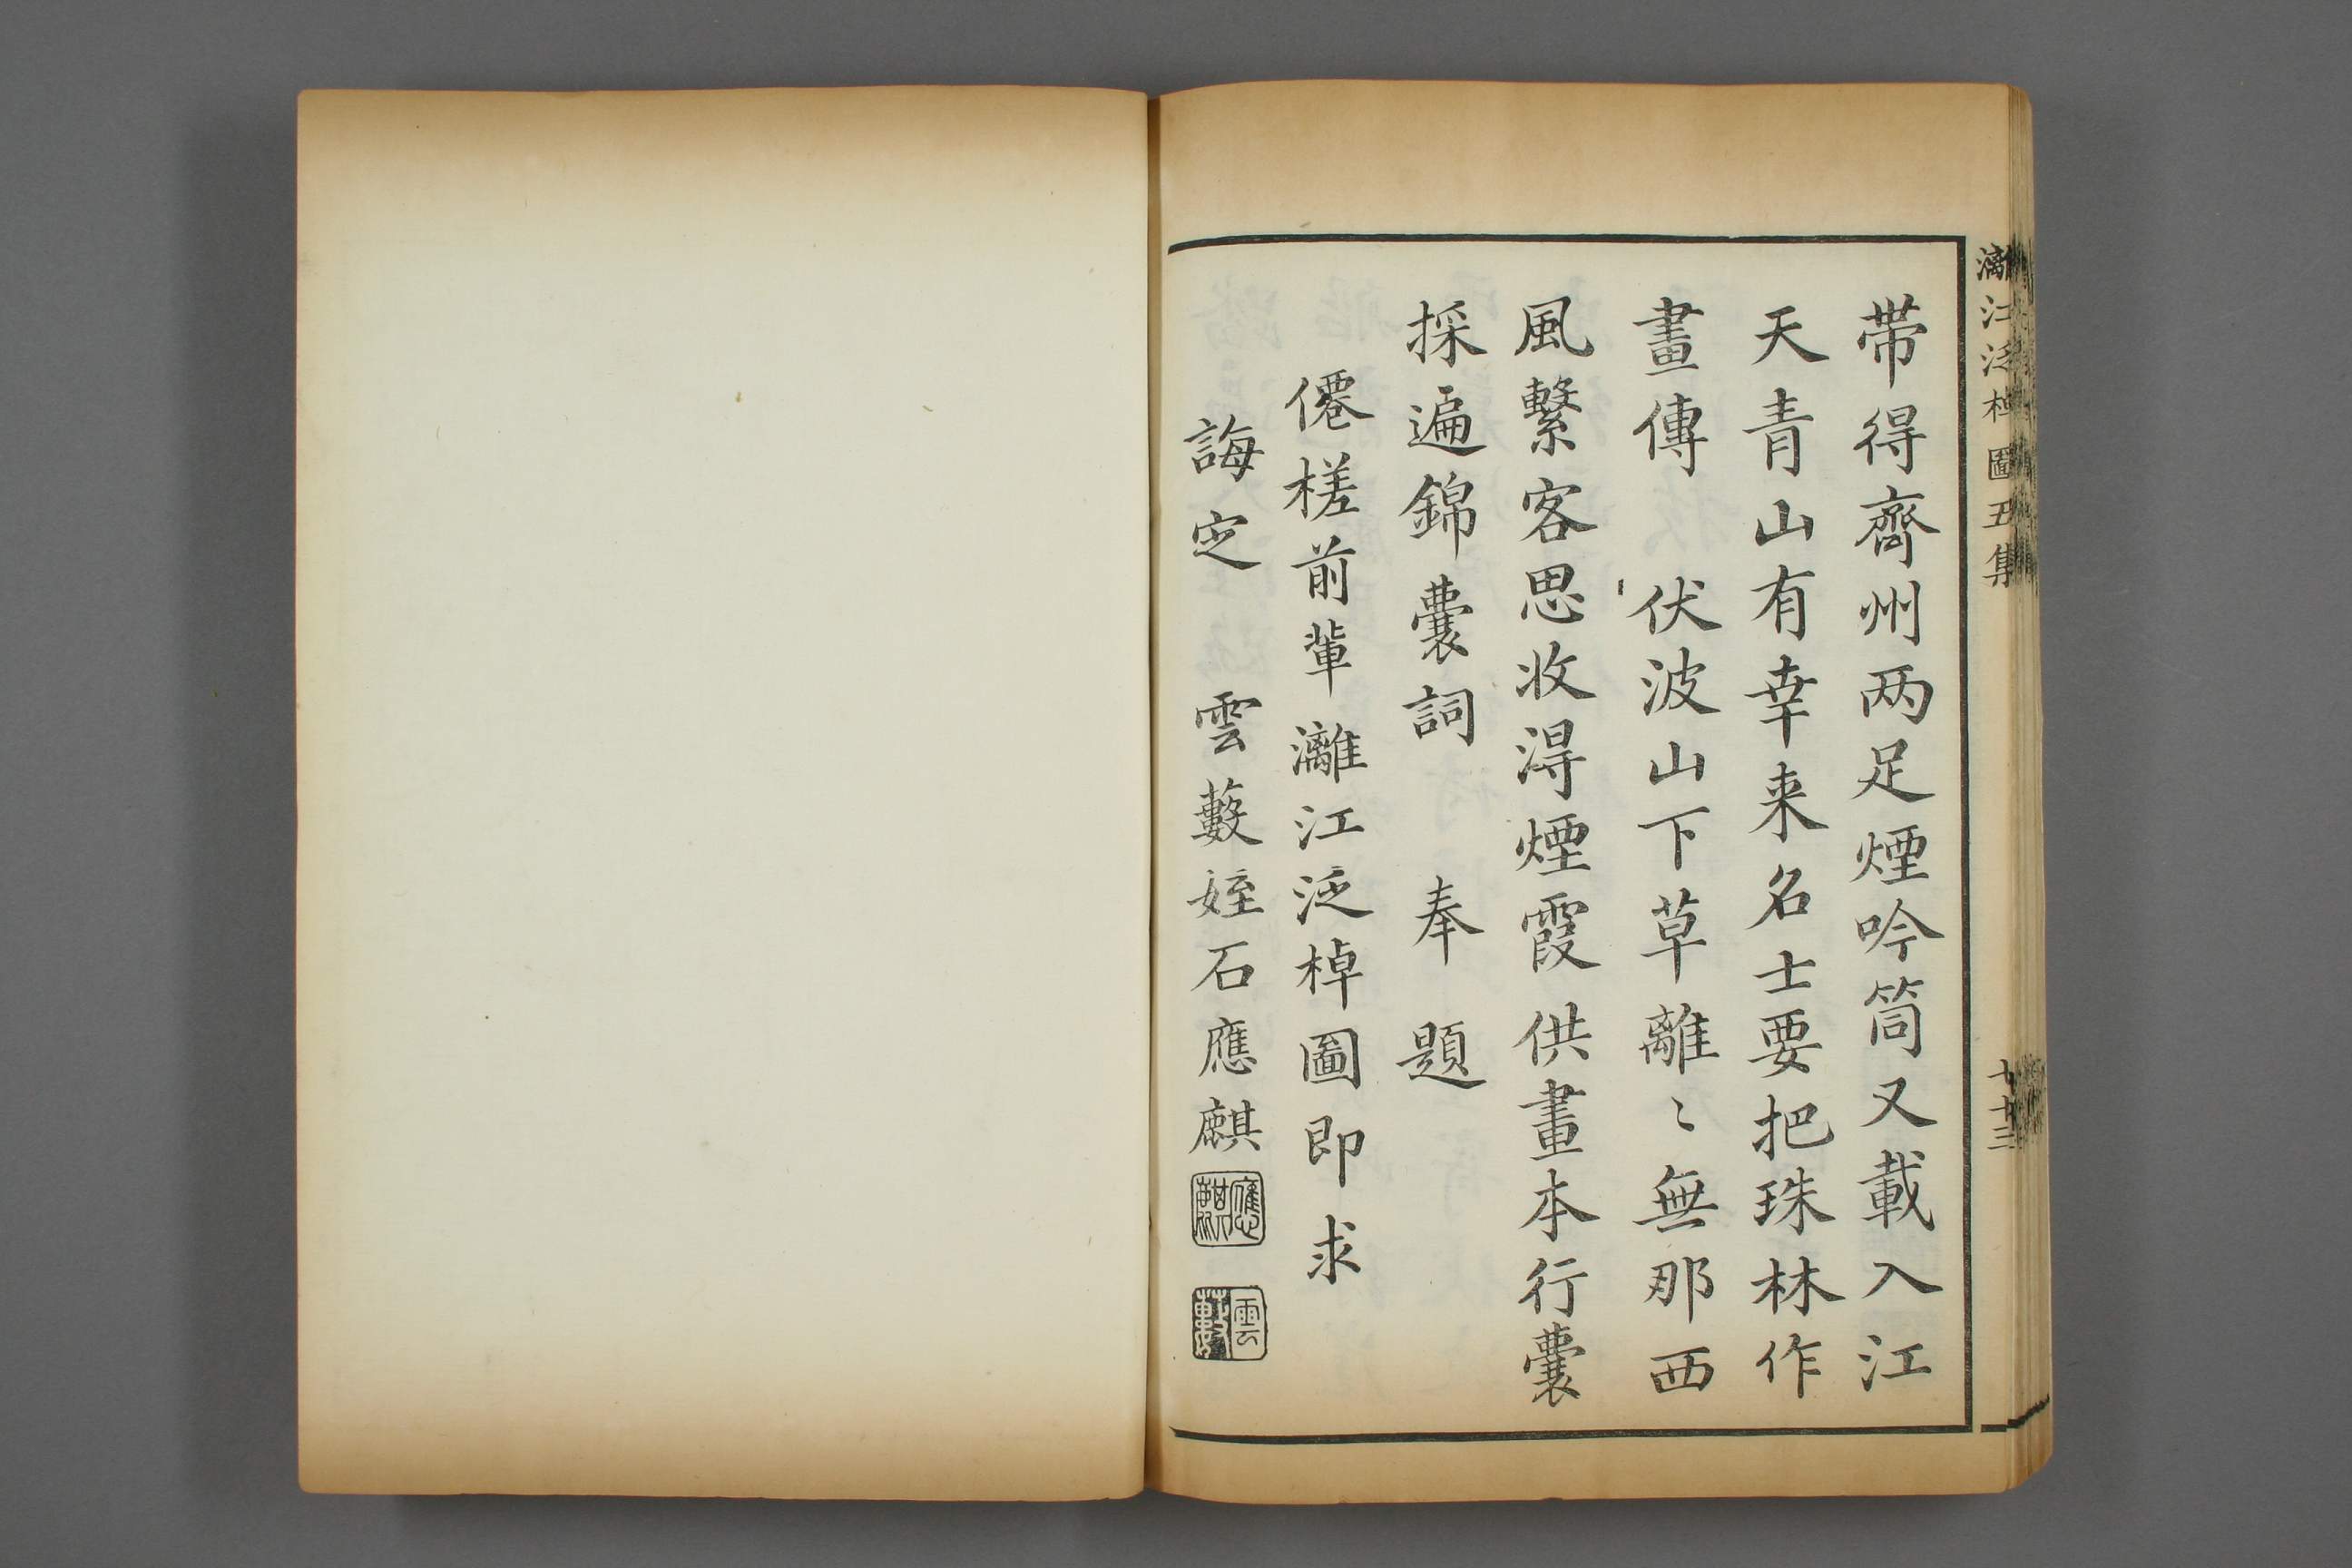 帯得齊州两足煙吟筒又載入江
天青山有幸来名士要把珠林作
畫傳　伏波山下草離〻無那西
風繫客思收淂煙霞供畫本行囊
採遍錦囊詞　奉題
僊槎前輩灕江泛棹圖即求
誨定　雲藪姪石應麒
應麒
雲藪
灕江泛棹圖五集
七十三